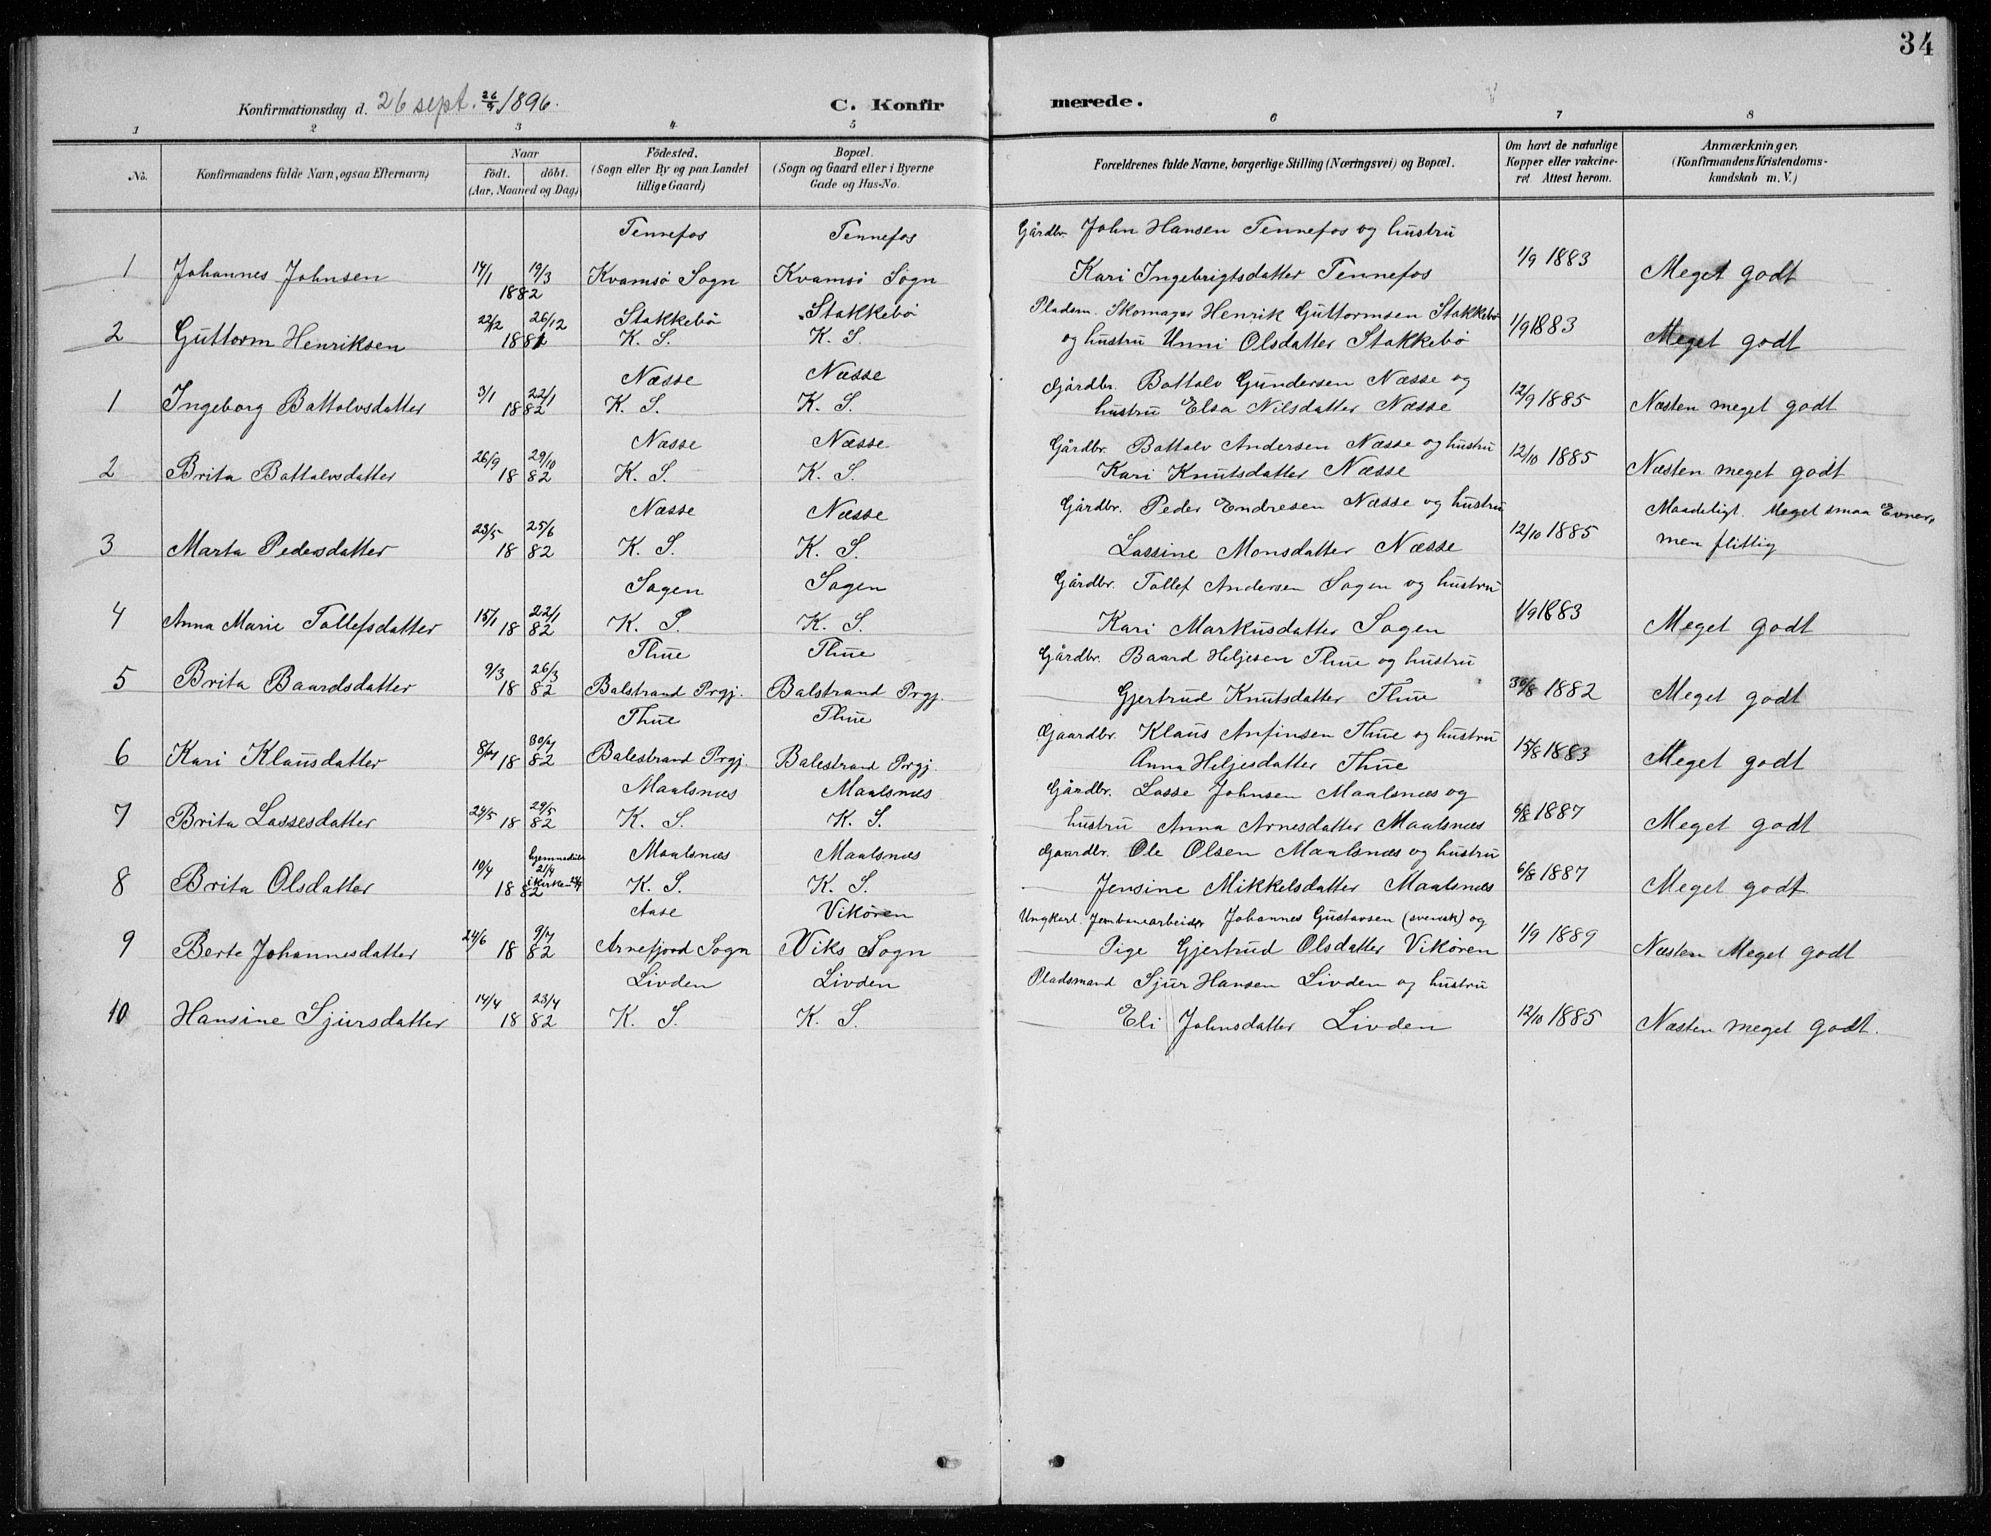 34
Konfirmationsdag d. 26 sept. 26/9 1896. C. Konfirmerede.
1 2 3 4 5 6 7 8
No. Konfirmandens fulde Navn, ogsaa Efternavn) Naar födt. döbt. (Aar, Maaned og Dag) Födested. (Sogn eller By og paa Landet tillige Gaard) Bopæl. (Sogn og Gaard eller i Byerne Gade og Hus-No. Forældrenes fulde Navne, borgerlige Stilling (Næringsvei) og Bopæl. Om havt de naturlige Kopper eller vakcineret. Attest herom. Anmærkninger. (Konfirmandens Kristendomskundskab m. V.)
Tennefos Tennefos Gårdbr. John Hansen Tennefos og hustru
1 Johannes Johnsen 14/1 19/3 1882 Kvamsö Sogn Kvamsö Sogn Kari Ingebrigtsdatter Tennefos 1/9 1883 Meget godt
Stakkebö Stakkebö Pladsm. Skomager Henrik Guttormsen Stakkebö
2 Guttorm Henriksen 22/12 26/12 1881 K. S. K. S. og hustru Unni Olsdatter Stakkebö 1/9 1883 Meget godt
Næsse Næsse Gårdbr. Battolv Gundersen Næsse og
1 Ingeborg Battolvsdatter 3/1 22/1 1882 K. S. K. S. hustru Elsa Nilsdatter Næsse 12/9 1885 Næsten meget godt
Næsse Næsse Gårdbr. Battolv Andersen Næsse og hustru
2 Brita Battolvsdatter 26/9 29/10 1882 K. S. K. S. Kari Knutsdatter Næsse 12/10 1885 Næsten meget godt
Næsse Næsse Gårdbr. Peder Endresen Næsse og hustru Maadeligt. Meget smaa Evner,
3 Marta Pedersdatter 23/5 25/6 1882 K. S. K. S. Lassine Monsdatter Næsse 12/10 1885 men flittig
Sagen Sagen Gårdbr. Tollef Andersen Sagen og hustru
4 Anna Marie Tollefsdatter 15/1 22/1 1882 K. S. K. S. Kari Markusdatter Sagen 1/9 1883 Meget godt
Thue Thue Gårdbr. Baard Heljesen Thue og hustru
5 Brita Baardsdatter 9/3 26/3 1882 Balstrand Prgj. Balstrand Prgj. Gjertrud Knutsdatter Thue 30/8 1882 Meget godt
Thue Thue Gaardbr. Klaus Anfinsen Thue og hustru
6 Kari Klausdatter 8/7 30/7 1882 Balestrand Prgj. Balestrand Prgj. Anna Heljesdatter Thue 15/8 1883 Meget godt
Maalsnæs Maalsnæs Gårdbr. Lasse Johnsen Maalsnæs og
7 Brita Lassesdatter 24/5 29/5 1882 K. S. K. S. hustru Anna Arnesdatter Maalsnæs 6/8 1887 Meget godt
Maalsnæs Maalsnæs Gaardbr. Ole Olsen Maalsnæs og hustru
8 Brita Olsdatter 10/4 hjemmedöbt 21/4 i Kirken 1882 K. S. K. S. Jensine Mikkelsdatter Maalsnæs 6/8 1887 Meget godt
Aase Vikören Ungkarl. Jernbanearbeider Johannes Gustavsen (svensk) og
9 Berte Johannesdatter 24/6 9/7 1882 Arnefjord Sogn Viks Sogn Pige Gjertrud Olsdatter Vikören 1/9 1889 Næsten Meget godt
Livden Livden Pladsmand Sjur Hansen Livden og hustru
10 Hansine Sjursdatter 14/4 23/4 1882 K. S. K. S. Eli Johnsdatter Livden 12/10 1885 Næsten meget godt.